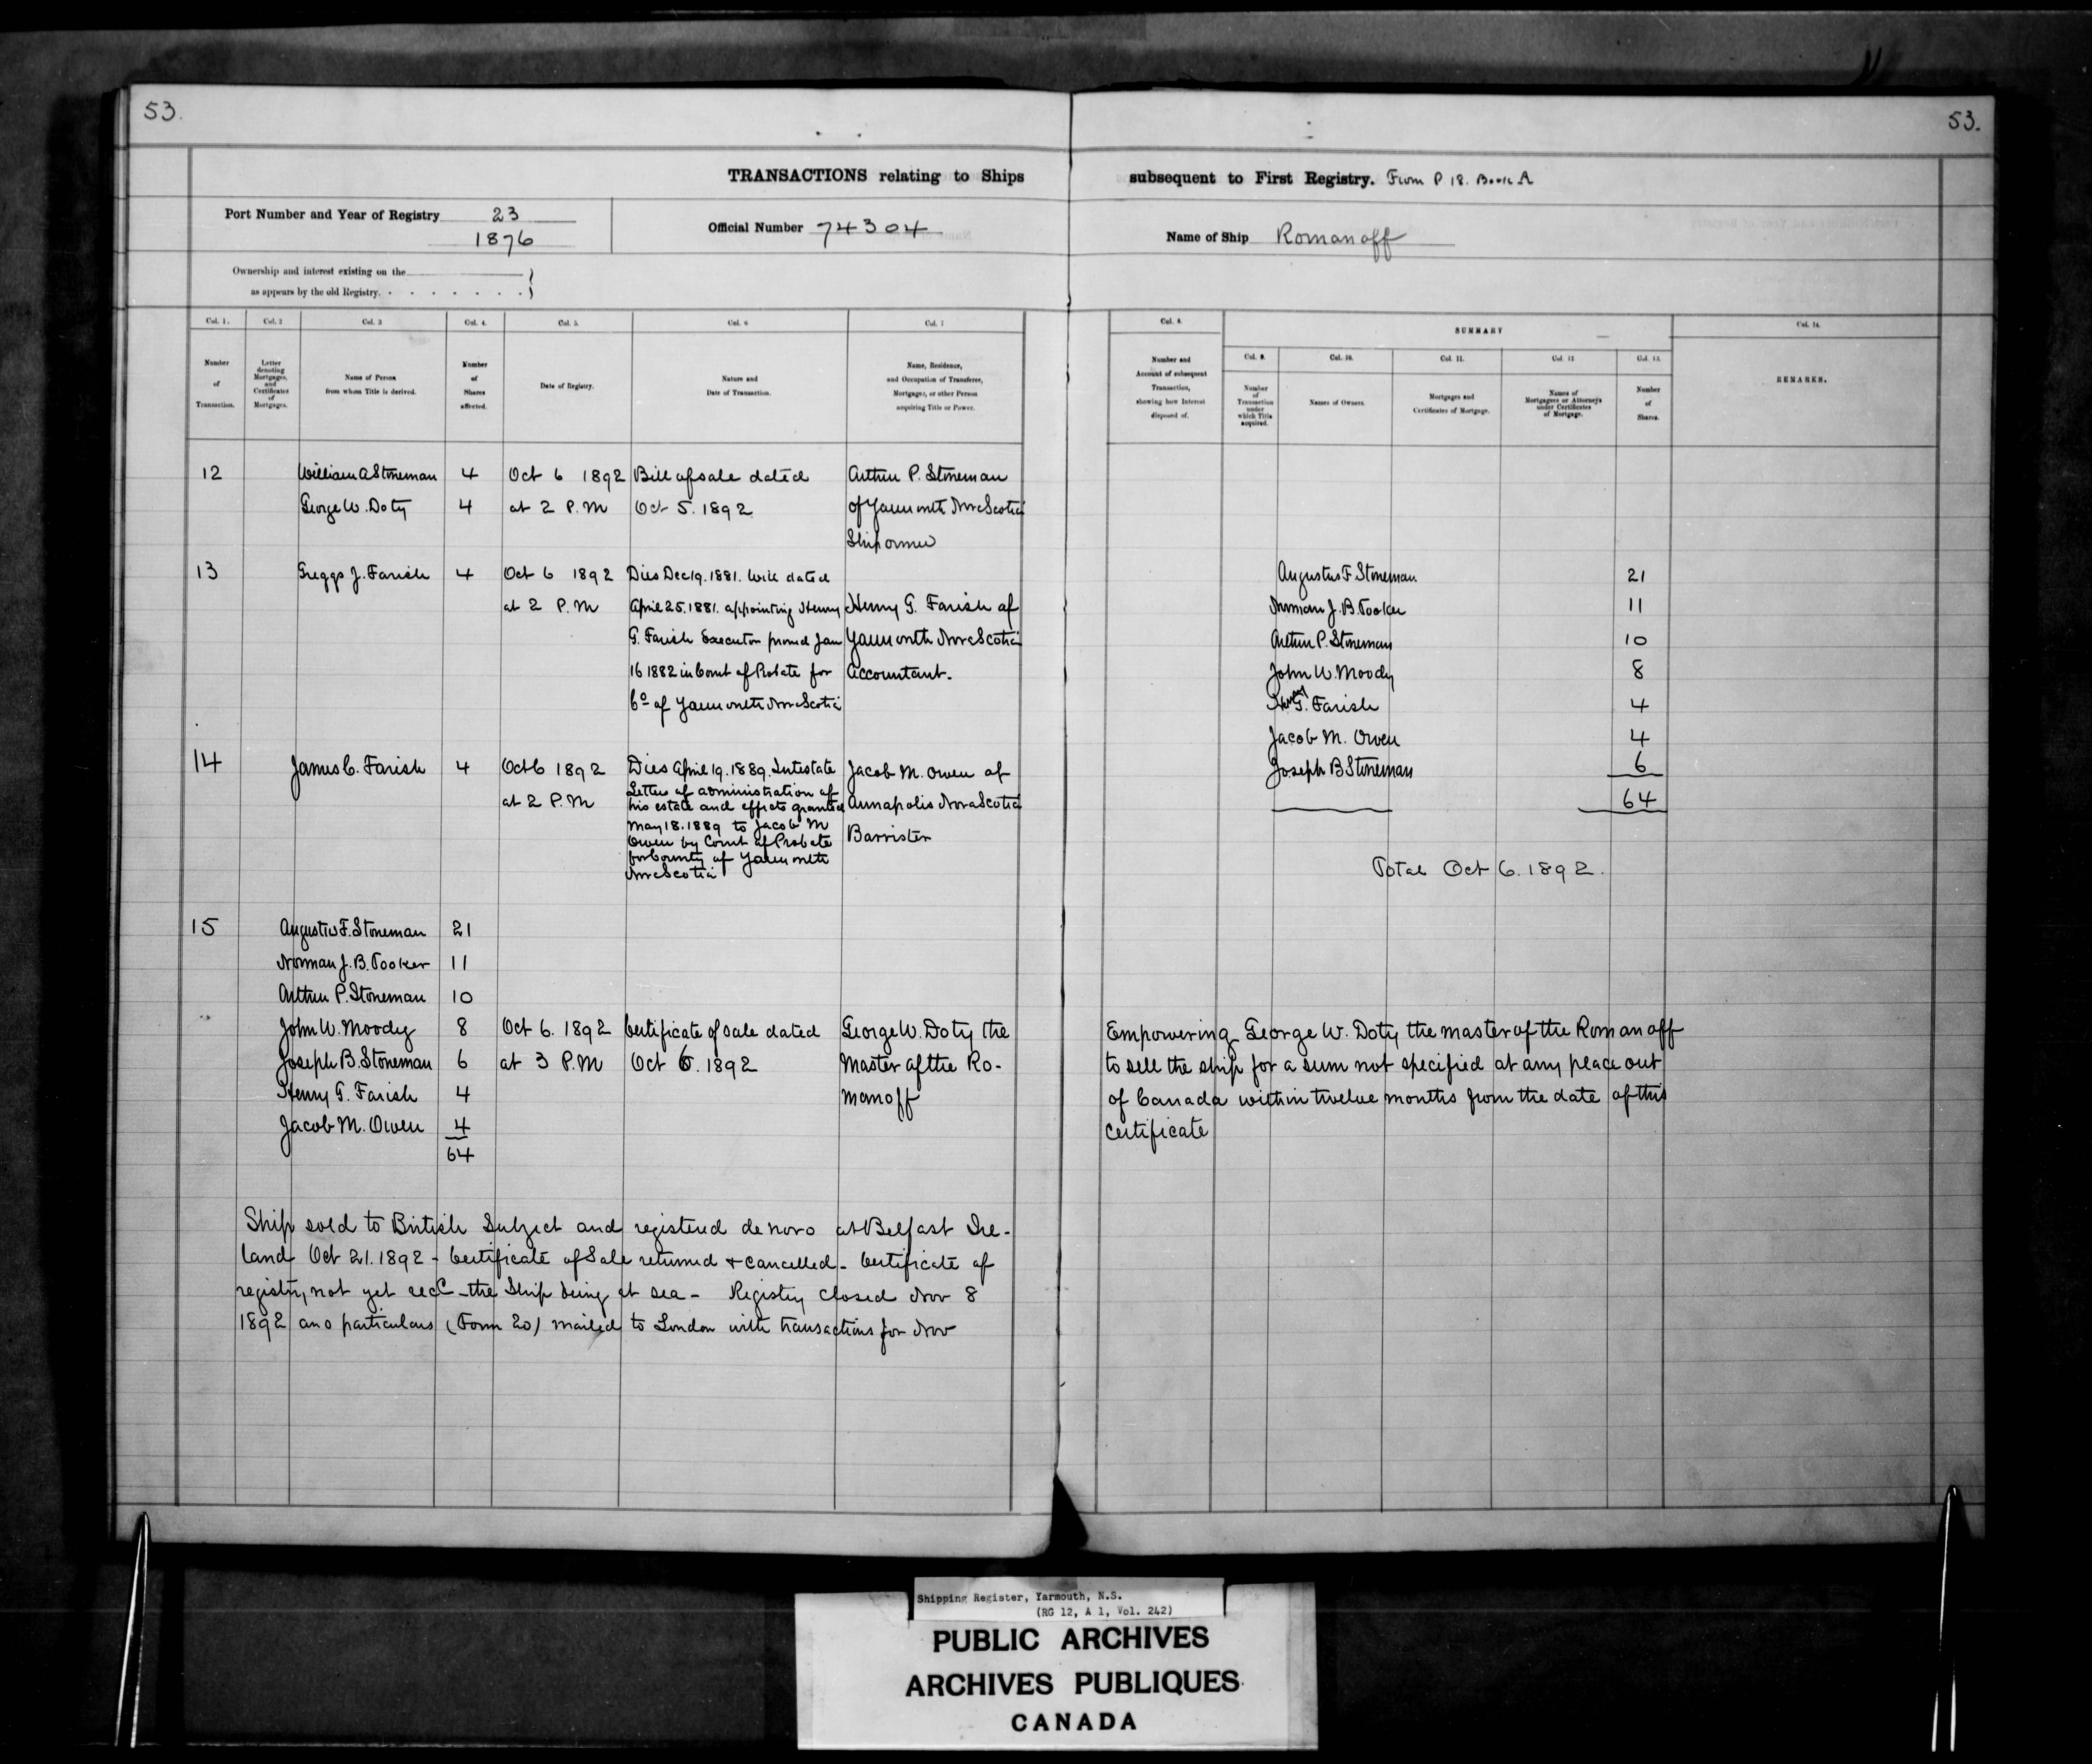 53.
53.
TRANSACTIONS relating to Ships subsequent to First Registry. From P 18. Book A
Port Number and Year of Registry 23
1876
Official Number 74304
Name of Ship Romanoff
Ownership and interest existing on the
as appears by the old Registry.
Col. 1. Col. 2 Col. 3 Col. 4. Col. 5. Col. 6 Col. 7
Number of Transaction.
Letter denoting Mortgages, and Certificates of Mortgages.
Name of Person from whom Title is derived.
Number of Shares affected.
Date of Registry.
Nature and Date of Transaction.
Name, Residence, and Occupation of Transferee, Mortgagee, or other Person acquiring Title or Power.
Col. 8.
Number and Account of subsequent Transaction, showing how Interest disposed of.
SUMMARY
Col. 9. Col. 10. Col. 11. Col. 12 Col. 13.
Number of Transaction under which Title acquired.
Names of Owners.
Mortgages and Certificates of Mortgage.
Names of Mortgagees or Attorneys under Certificates of Mortgage.
Number of Shares.
Col. 14.
REMARKS.
12 William A Stoneman 4 Oct 6 1892 Bill of sale dated Arthur P. Stoneman
George W. Doty 4 at 2 P.M Oct 5. 1892 of Yarmouth Nova Scotia
Ship owner
13 Greggs J. Farish 4 Oct 6 1892 Dies Dec 19. 1881. Will dated
at 2 P.M April 25. 1881. appointing Henry Henry G. Farish of
G. Farish Executor proved Jan Yarmouth Nova Scotia
16 1882 in Court of Probate for Accountant.
Co of Yarmouth Nova Scotia
14 James C. Farish 4 Oct 6 1892 Dies April 19. 1889. Intestate Jacob M. Owen of
at 2 P.M Letters of administration of
his estate and effects granted Annapolis Nova Scotia
May 18. 1889 to Jacob M
Owen by Court of Probate Barrister
for County of Yarmouth
Nova Scotia
Augustus F Stoneman 21
Norman J. B. Tooker 11
Arthur P. Stoneman 10
John W. Moody 8
Henry G. Farish 4
Jacob M. Owen 4
Joseph B Stoneman 6
64
Total Oct 6. 1892.
15 Augustus F. Stoneman 21
Norman J. B. Tooker 11
Arthur P. Stoneman 10
John W. Moody 8 Oct 6. 1892 Certificate of sale dated George W. Doty the
Joseph B. Stoneman 6 at 3 P.M Oct 6. 1892 Master of the Ro-
Henry G. Farish 4 manoff
Jacob M. Owen 4
64
Empowering George W. Doty the master of the Romanoff
to sell the ship for a sum not specified at any place out
of Canada within twelve months from the date of this
Certificate
Ship sold to British Subject and registered de novo at Belfast Ire-
land Oct 21. 1892 - Certificate of Sale returned & cancelled - Certificate of
registry, not yet recd - the Ship being at sea - Registry closed Nov 8
1892 and particulars (Form 20) mailed to London with transactions for Nov
Shipping Register, Yarmouth, N.S.
(RG 12, A 1, Vol. 242)
PUBLIC ARCHIVES
ARCHIVES PUBLIQUES
CANADA